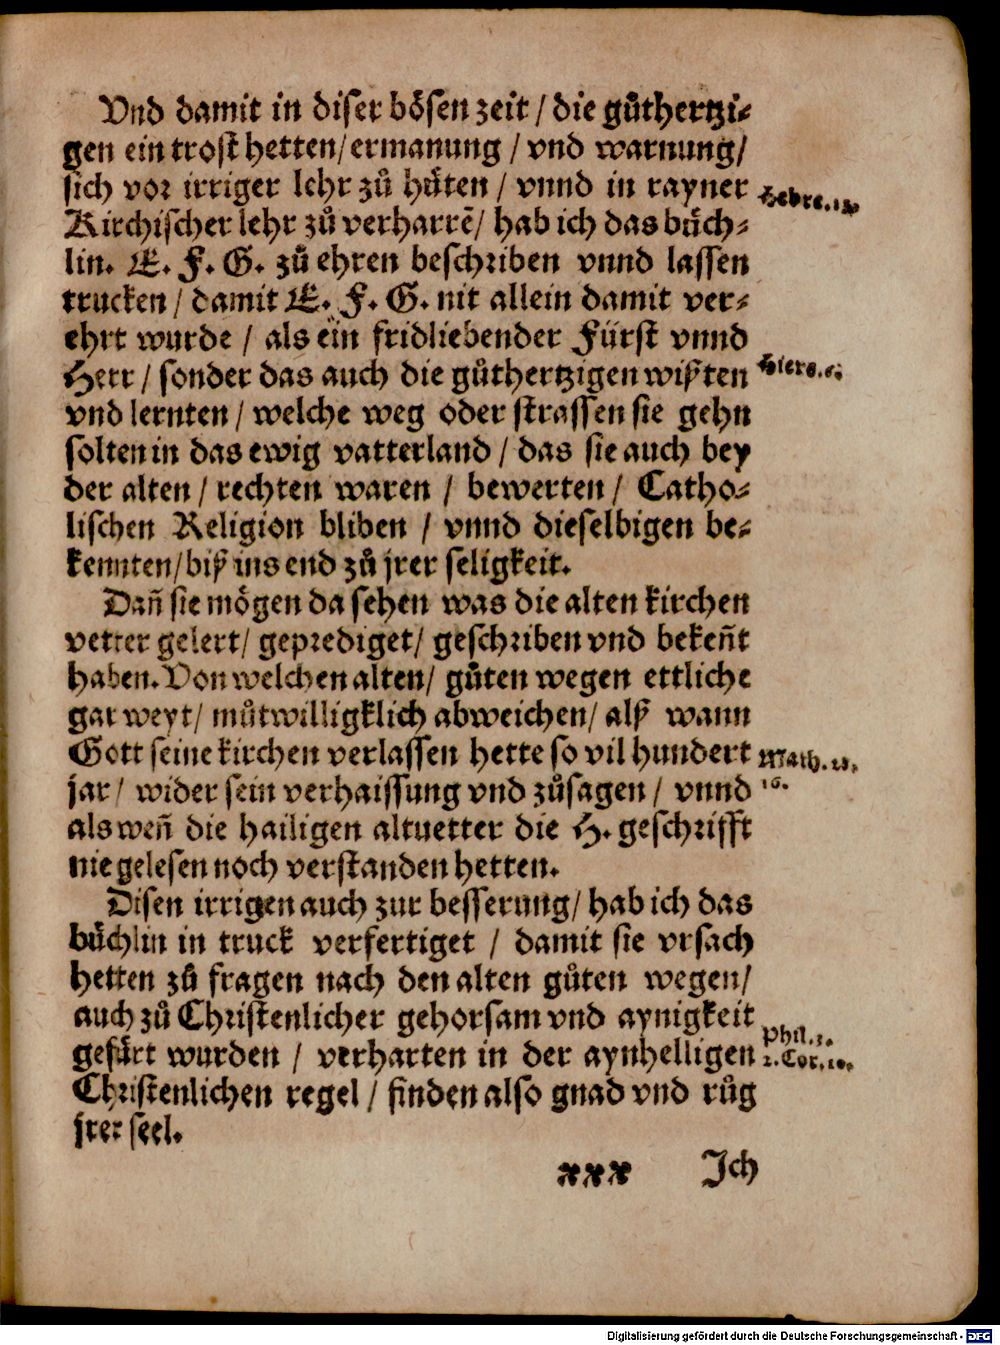 Vnd damit in diser bösen zeit / die gůthertzi⸗
gen ein trost hetten / ermanung / vnd warnung /
sich vor irriger lehr zů hůten / vnnd in rayner
Hebre.
Kirchischer lehr zů verharrē / hab ich das bůch⸗
lin. E. F. G. zů ehren beschriben vnnd lassen
trucken / damit E. F. G. nit allein damit ver⸗
ehrt wurde / als ein fridliebender Fürst vnnd
Herr / sonder das auch die gůthertzigen wißten
Hiere. 6.
vnd lernten / welche weg oder strassen sie gehn
solten in das ewig vatterland / das sie auch bey
der alten / rechten waren / bewerten / Catho⸗
lischen Religion bliben / vnnd dieselbigen be⸗
kennten / biß ins end zů jrer seligkeit.
Dañ sie mögen da sehen was die alten kirchen
vetter gelert / geprediget / geschriben vnd bekeñt
haben. Von welchen alten / gůten wegen ettliche
gar weyt / můtwilligklich abweichen / alß wann
Gott seine kirchen verlassen hette so vil hundert
Math. 28.
jar / wider sein verhaissung vnd zůsagen / vnnd
16.
als weñ die hailigen altuetter die H. geschrifft
nie gelesen noch verstanden hetten.
Disen irrigen auch zur besserung / hab ich das
bůchlin in truck verfertiget / damit sie vrsach
hetten zů fragen nach den alten gůten wegen /
auch zů Christenlicher gehorsam vnd aynigkeit
Phil. 3.
gefůrt wurden / verharten in der aynhelligen
2. Cor. 10.
Christenlichen regel / finden also gnad vnd růg
jrer seel.
Ich
Digitalisierung gefördert durch die Deutsche Forschungsgemeinschaft - DFG